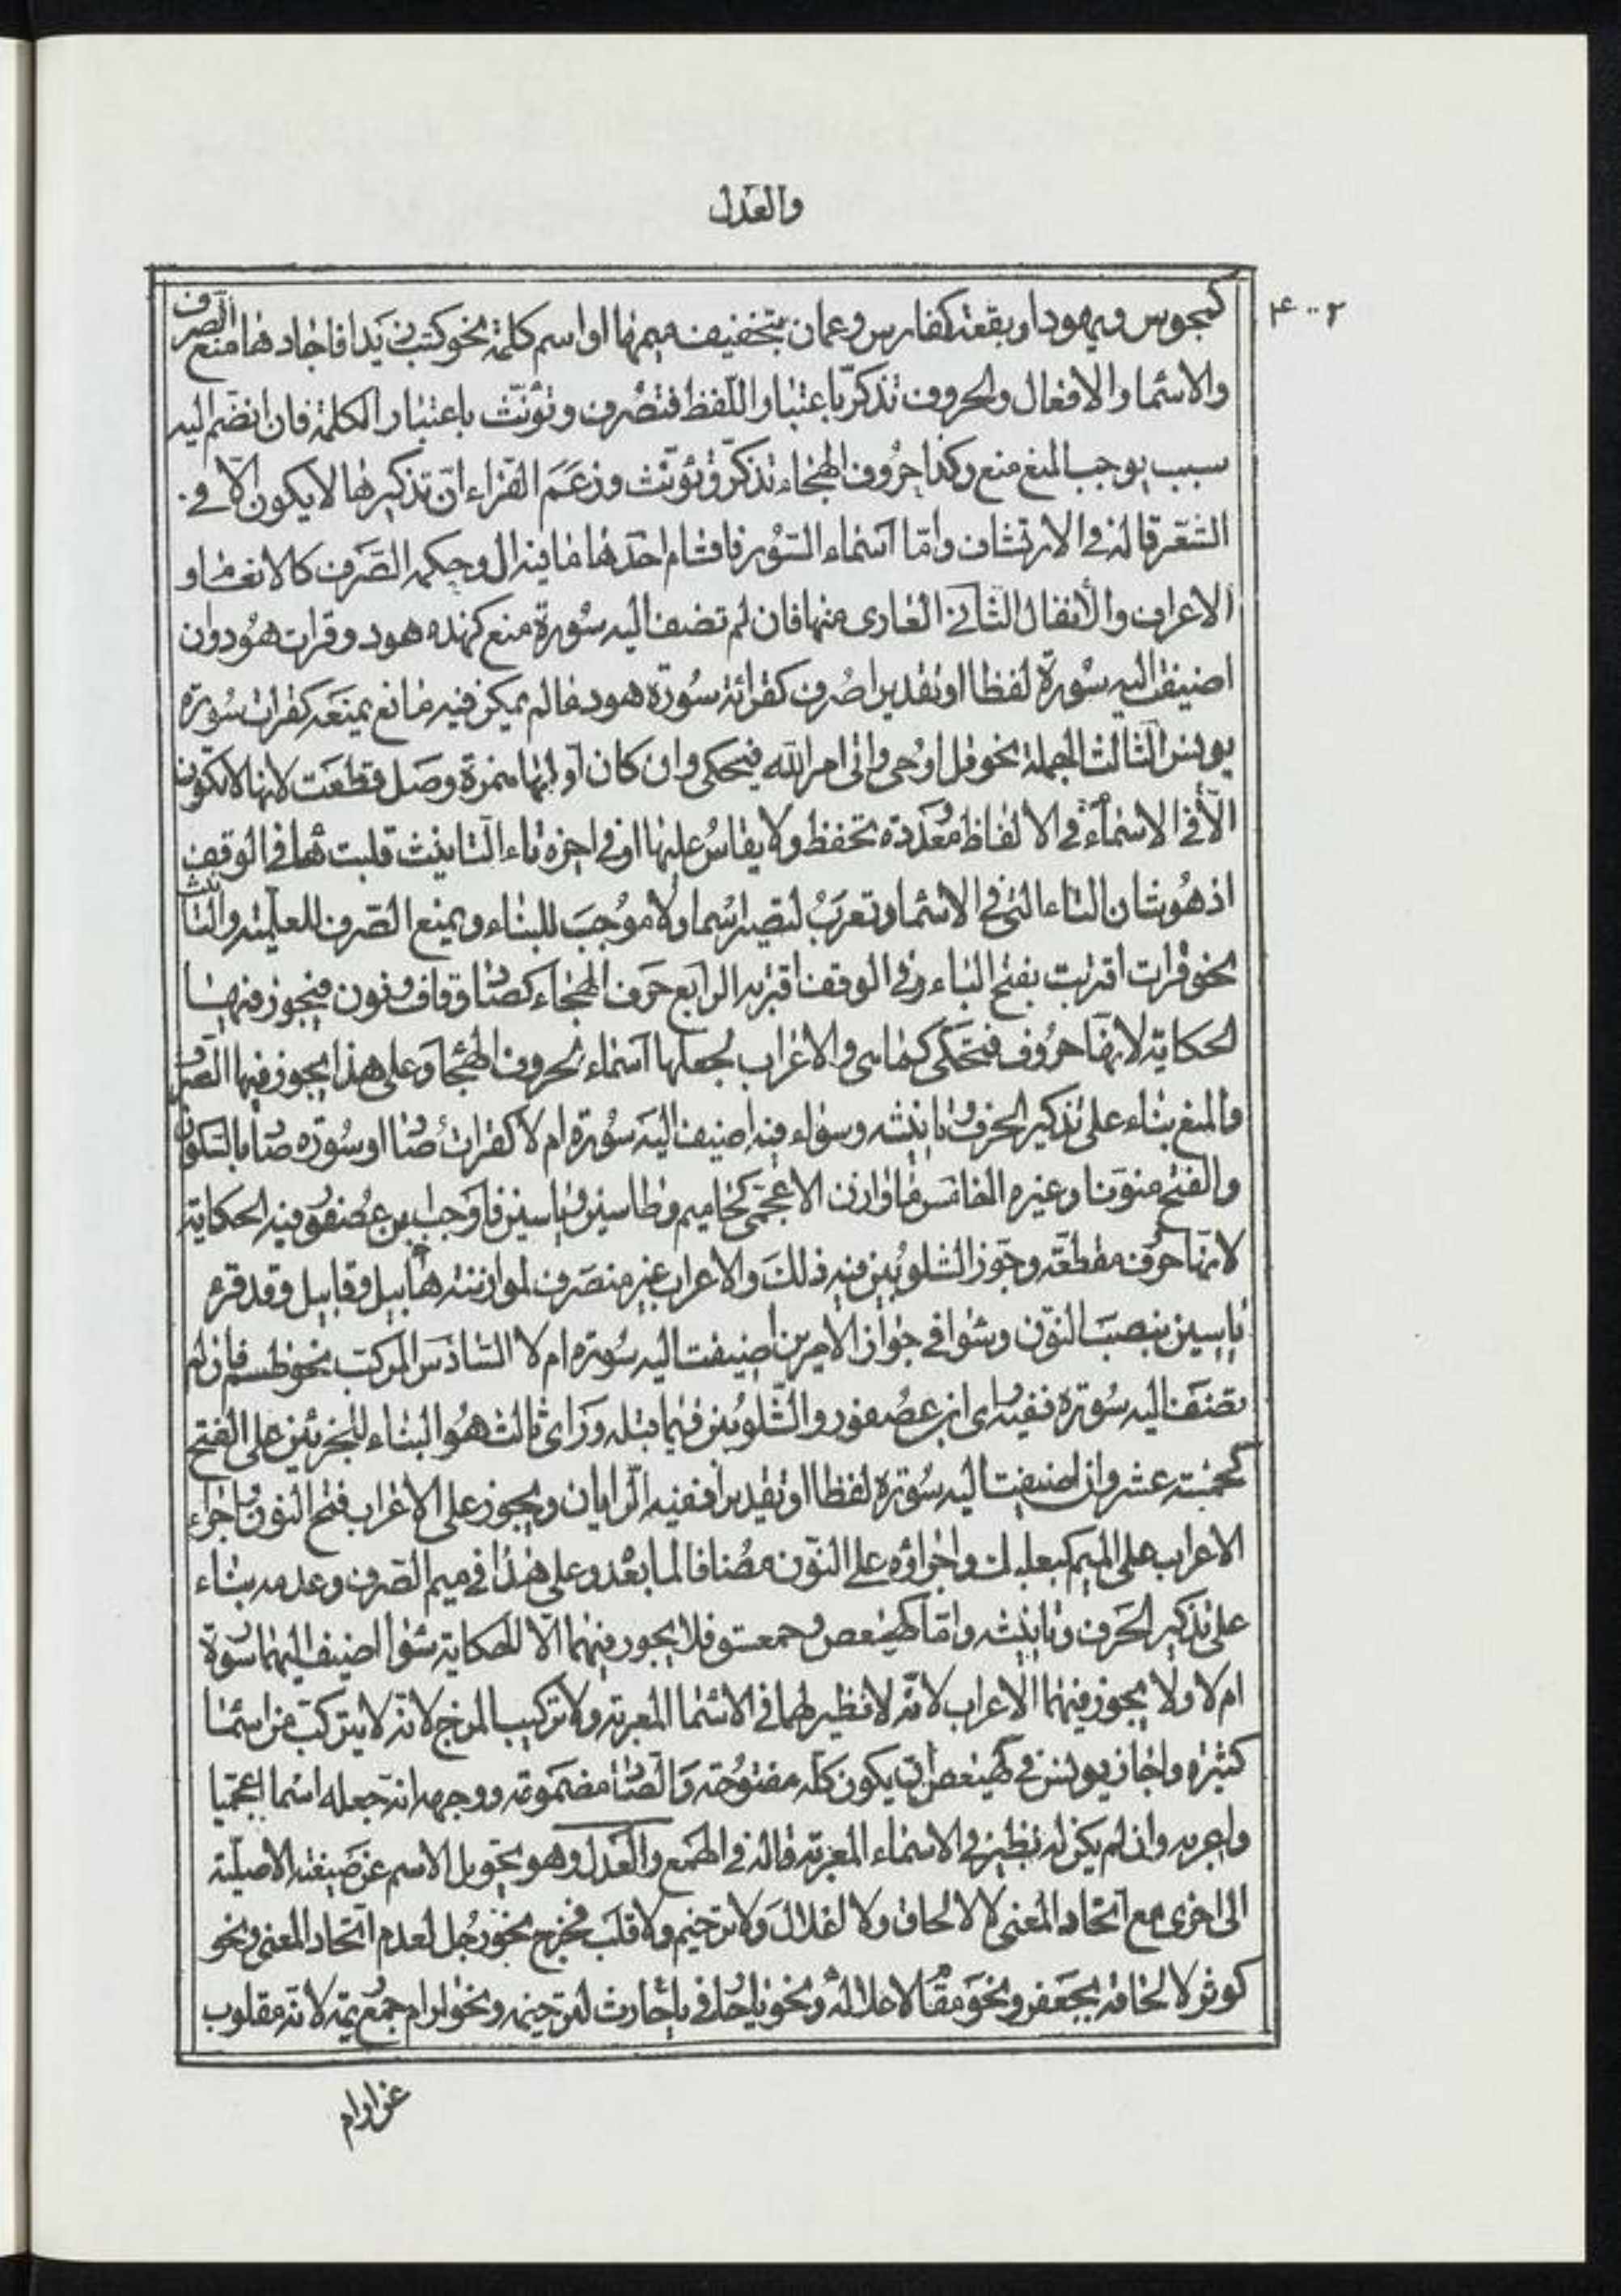 والعدل
كمجوس ويهود او بقعة كفارس وعمان بتخفيف ميمها او اسم كلمة نحو كتب زيدا فاجاد ها منع الصرف
والاسما والافعال والحروف تذكر باعتبار اللفظ فتصرف وتؤنث باعتبار الكلمة فان انضم اليه
سبب يوجب المنع منع وكذا حروف الهجاء تذكر وتؤنث وزعم الفراء ان تذكيرها لا يكون الا في
الشعر قاله في الارتشاف واما اسماء السور فاقسام احدها ما فيه ال وحكمه الصرف كالانعام و
الاعراف والانفال الثاني العارى منها فان لم تضف اليه سورة منع كهذه هود وقرات هود وان
اضيفت اليه سورة لفظا او تقديرا صرف كقرائة سورة هود مالم يكن فيه مانع يمنعه كقرات سورة
يونس الثالث الجملة نحو قل اوحى واتى امر الله فيحكى وان كان اولها همزة وصل قطعت لانها لا تكون
الا في الاسماء في الا لفاظ معددة تحفظ ولا يقاس عليها او في اخره تاء التانيث قلبت ها في الوقف
اذ هو شان التاء التى في الاسما وتعرب لتصير اسما ولا موجب للبناء ويمنع الصرف للعلمية والتانيث
نحو قرات اقتربت بفتح التاء وفى الوقف اقتربه الرابع حرف الهجاء كصاد وقاف ونون فيجوز فيها
الحكاية لانها حروف فتحكى كما هى والاعراب لجعلها اسماء لحروف الهجا وعلى هذا يجوز فيها الصرف
والمنع بناء على تذكير الحرف وتانيثه وسواء فيه اضيف اليه سورة ام لا كقرات صاد او سورة صاد بالسكون
والفتح منونا وغيره الخامس ما وازن الاعجمى كحاميم وطاسين وياسين فاوجب ابن عصفور فيه الحكاية
لانها حروف مقطعة وجوز الشلوبين فيه ذلك والاعراب غير منصرف لموازنته هابيل وقابيل وقد قرء
ياسين بنصب النون وسوا في جواز الامرين اضيفت اليه سورة ام لا السادس المركب نحو طسم فان لم
تضف اليه سورة ففيه راى ابن عصفور والشلوبين فيما قبله وراى ثالث هو البناء للجزئين على الفتح
كخمسة عشر وان اضيفت اليه سورة لفظا او تقديرا ففيه الرايان ويجوز على الاعراب فتح النون واجراء
الاعراب على الميم كبعلبك واجراؤه على النون مضافا لما بعد وعلى هذا في ميم الصرف وعدمه بناء
على تذكير الحرف وتانيثه واما كهيعص وحمعسق فلا يجوز فيهما الا الحكاية سوا اضيف اليهما سورة
ام لا ولا يجوز فيهما الاعراب لانه لا نظير لهما في الاسما المعربة ولا تركيب المزج لانه لا يتركب من اسما
كثيرة واجاز يونس في كهيعص ان يكون كله مفتوحة والصاد مضمومة ووجهه انه جعله اسما اعجميا
واعربه وان لم يكن له نظير في الاسماء المعربة قاله في الهمع والعدل وهو تحويل الاسم عن صيغته الاصلية
الى اخرى مع اتحاد المعنى لا لالحاق ولا لاعلال ولا ترخيم ولا قلب فخرج نحو رجل لعدم اتحاد المعنى ونحو
كوثر لالحاقه بجعفر ونحو مقام لاعلاله ونحو يا حار في يا حارث لترخيمه ونحو ارام جمع ريم لانه مقلوب
عن اوام